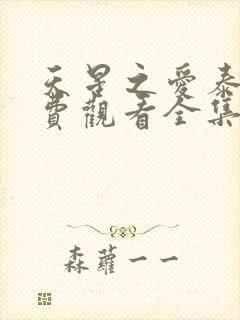 天星之愛泰
費觀看全集
森蘿一一